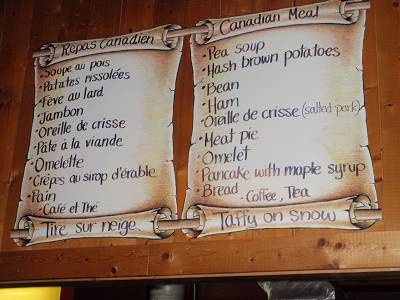 Repas Canadien
• Soupe au pois
• Patates rissolées
• Fève au lard
• Jambon
• Oreille de crisse
• Pâté à la viande
• Omelette
• Crêpes au sirop d'érable
• Pain
• Café et Thé
Tire sur neige
Canadian Meal
• Pea soup
• Hash brown potatoes
• Bean
• Ham
• Oreille de crisse (salted pork)
• Meat pie
• Omelet
• Pancake with maple syrup
• Bread - Coffee, Tea
Taffy on snow